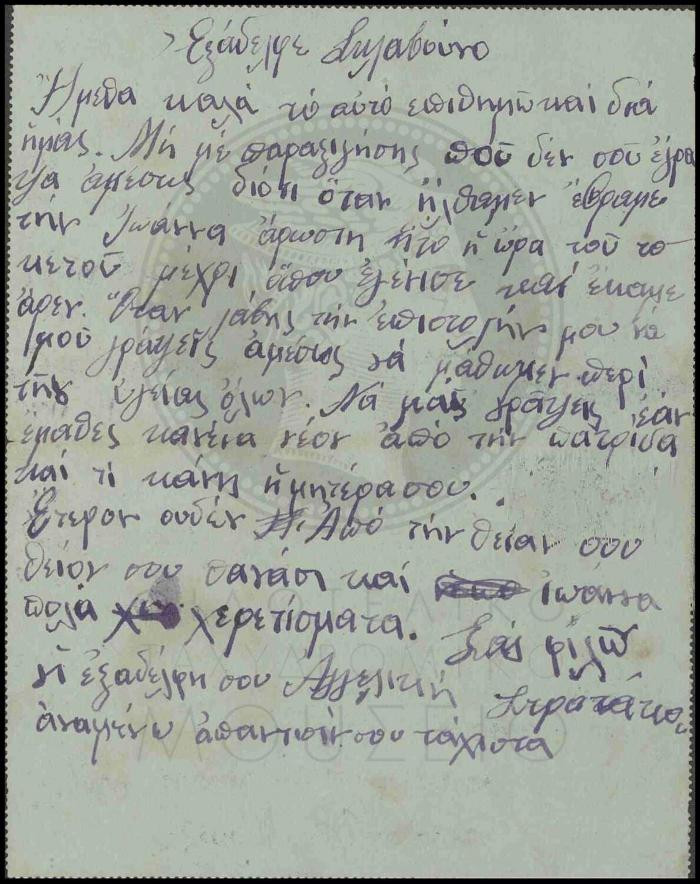 Εξάδελφε Σκλαβούνο
Ἤμεθα καλά τό αὐτό επιθημῶ καί διά
ἡμάς. Μή μέ παραξιγήσης ποῦ δέν σοῦ ἔγρα
ψα ἀμεσως διότι ὅταν ἤλθαμεν ἕβραμε
τήν Ἰωάννα ἄρωστη ἦτο ἡ ὥρα τοῦ το
κετοῦ μέχρι ὅπου ἐγένισε καί ἔκαμε
ἄρεν. Ὅταν λάβης τήν ἐπιστολήν μου νά
μοῦ γράψεις ἀμέσως νά μάθωμεν περί
τῆς ὑγείας ὅλων. Νά μᾶς γράψεις ἐάν
ἔμαθες κανένα νέον ἀπό τήν πατρίδα
καί τί κάνη ἡ μητέρα σου.
Ἕτερον ουδέν Ἀπό τήν θείαν σου
θείον σου θανάσι καί Ἰωάννα
πολά χερετίσματα. Σάς φιλῶ
ἡ ἐξαδέλφη σου Ἀγγελικἠ
Στρατάκου
ἀναμένω ἀπαντισίν σου τάχιστα
ΦΙΛΟΤΕΛΙΚΟ
ΤΑΧΥΔΡΟΜΙΚΟ
ΜΟΥΣΕΙΟ